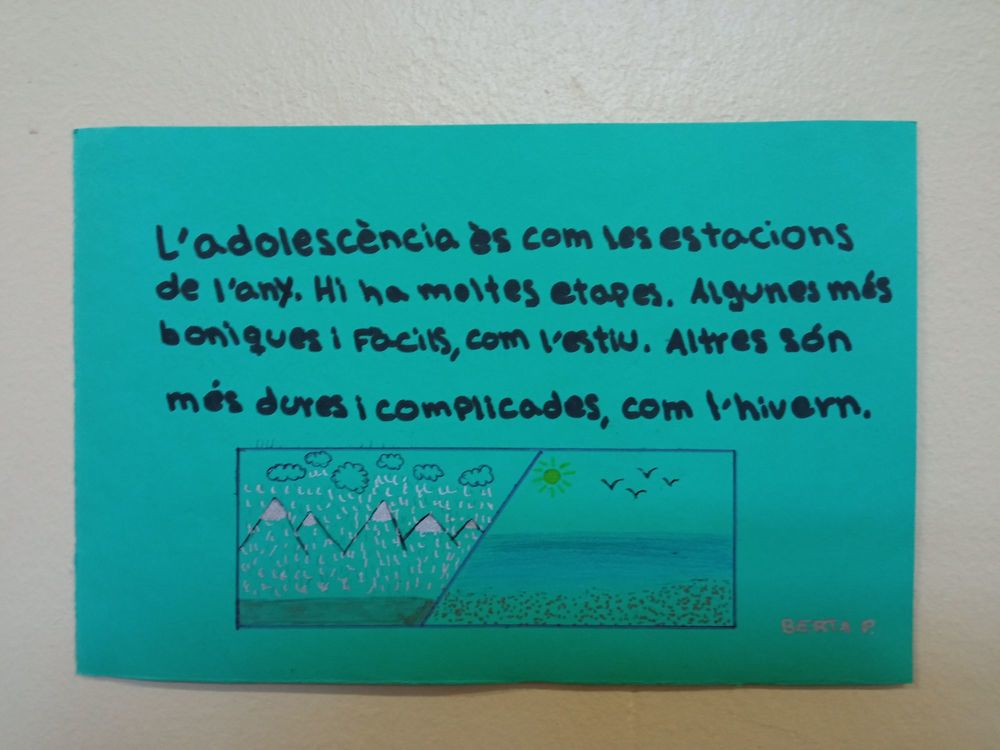 L'adolescència ès com les estacions
de l'any. Hi ha moltes etapes. Algunes més
boniques i Fàcils, com l'estiu. Altres són
més dures i complicades, com l'hivern.
BERTA P.